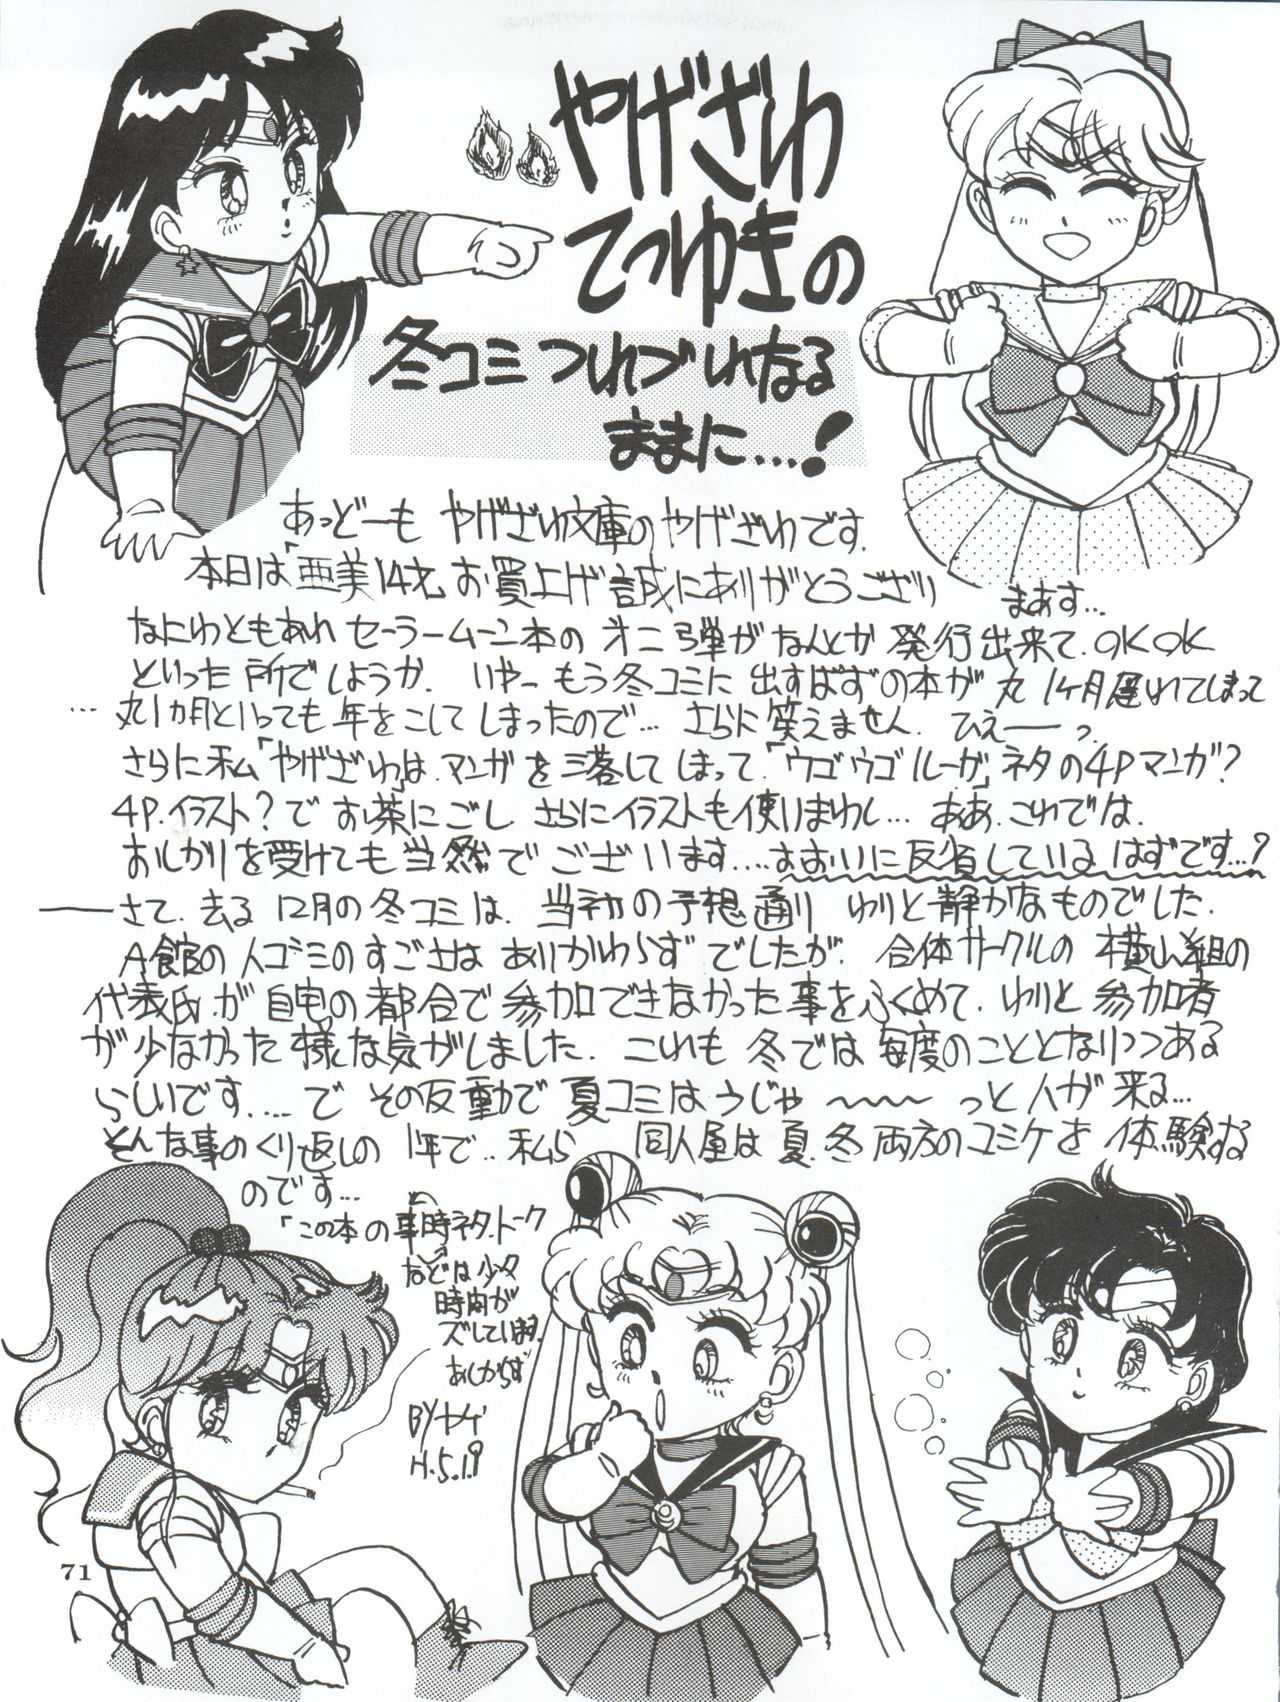 やげざわ
てつゆきの
冬コミつれづれなる
ままに…!
あっどーも やげざわ文庫のやげざわです.
本日は「亜美14才」お買上げ誠にありがとうござり
まあす…
なにわともあれ セーラームーン本の オニ弾がなんとか 発行出来て. OKOK
といった所でしょうか. いやー もう冬コミに 出すはずの本が 丸1ヶ月遅れてしまって
…丸1カ月といっても年をこしてしまったので… さらに笑えません. ひえーーっ.
さらに私「やげざわ」は. マンガを 三落してしまって.「ウゴウゴルーガ」ネタの4Pマンガ?
4P.イラスト?で お茶にごし さらにイラストも使いまわし… ああ. これでは.
おしかりを受けても当然でございます.… おおいに反省しているはずです…?
――さて. 去る 12月の冬コミは. 当初の予想通り わりと静かなものでした.
A館の人ゴミのすごさは ありかわらず でしたが. 合体サークルの 横山組の
代表氏が 自宅の都合で参加できなかった事をふくめて. わりと 参加者
が少なかった様な気がしました. これも 冬では毎度のこととなりつつある
らしいです.… で その反動で 夏コミはうじゃ～～～っと人が来る…
そんな事のくり返しの 1年で.. 私ら 同人屋は 夏.冬 両方のコミケを 体験する
のです…
「この本の 時事ネタ.トーク
などは少々
時間が
ズレています.
あしからず
BYヤゲ
H.5.1.19
71